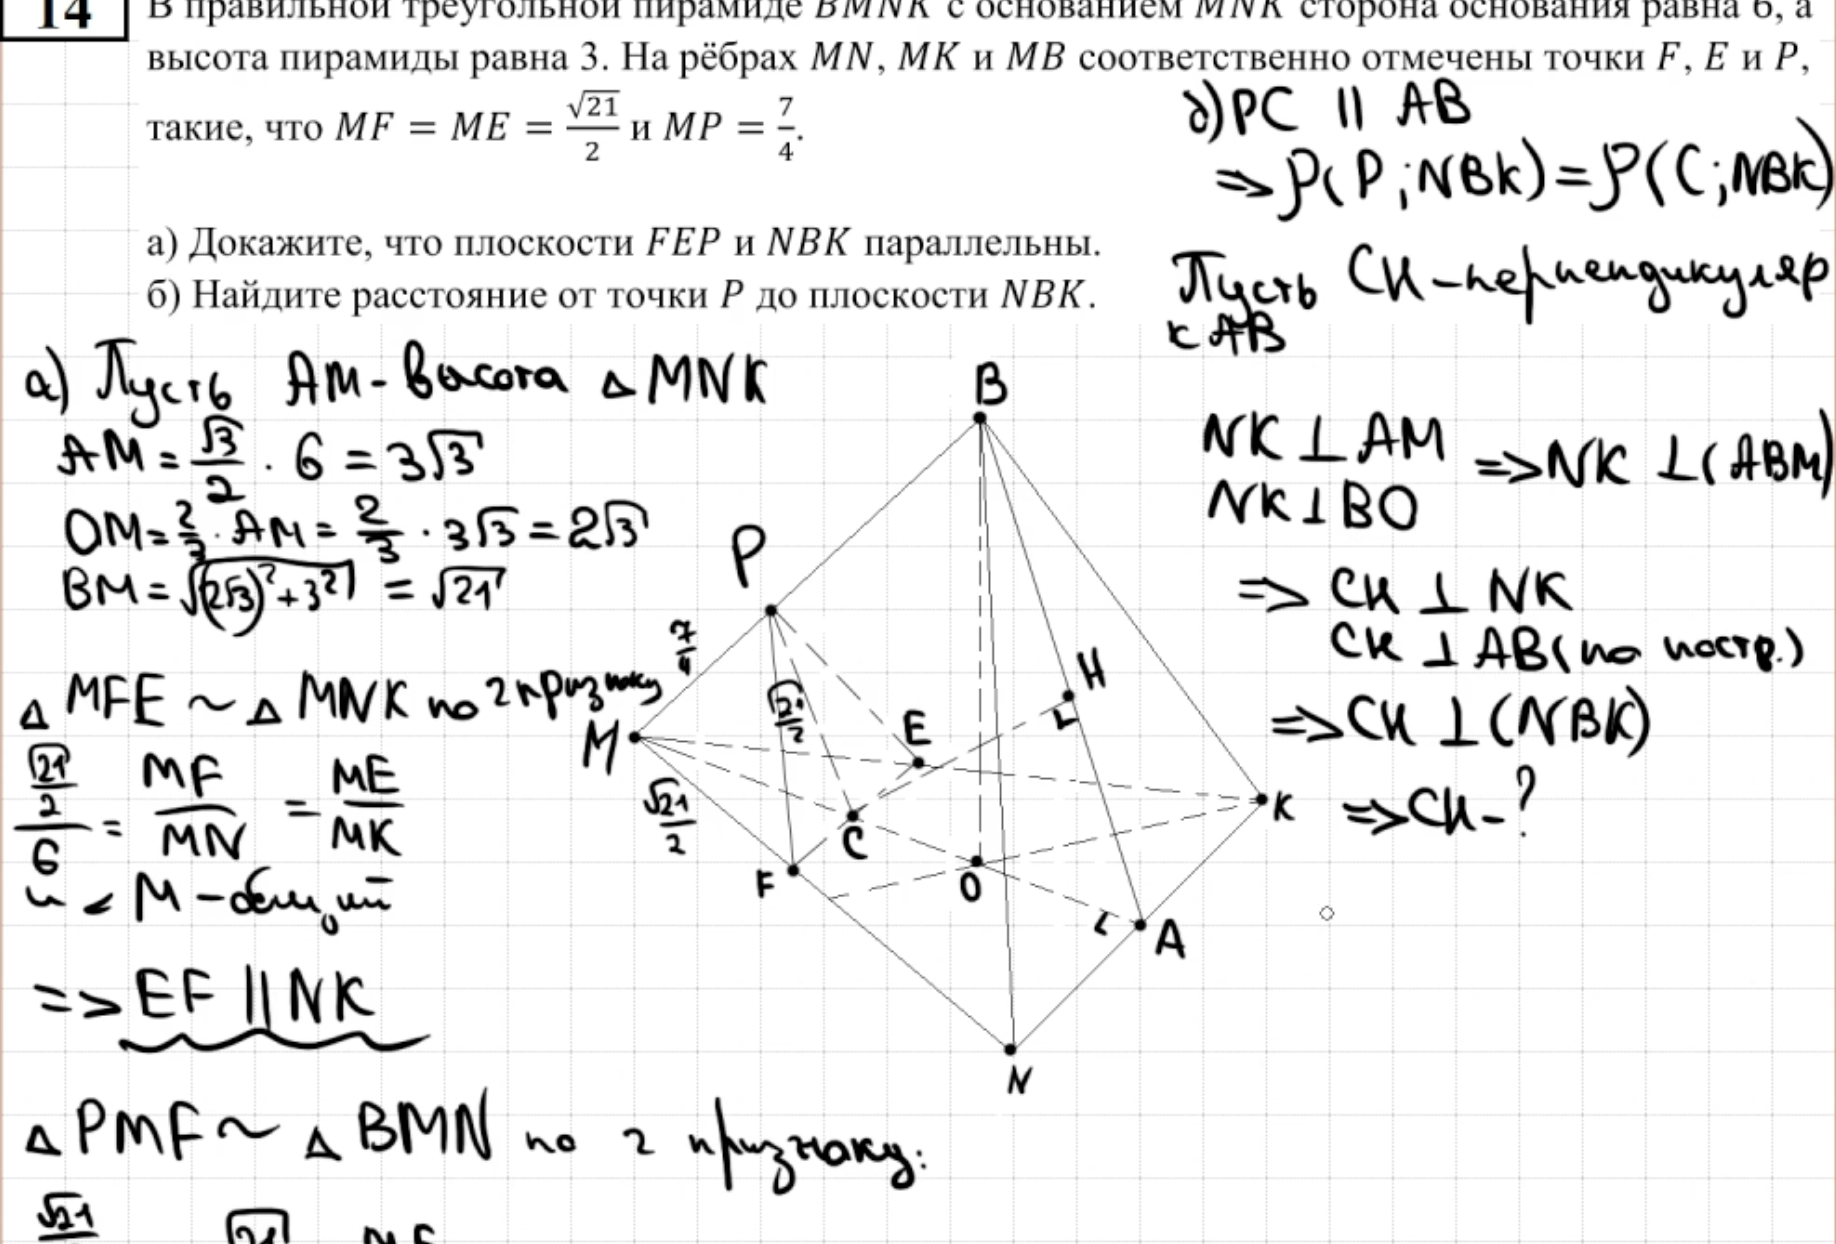 14
В правильной треугольной пирамиде BMNK с основанием MNK сторона основания равна 6, а
высота пирамиды равна 3. На рёбрах MN, MK и MB соответственно отмечены точки F, E и P,
такие, что MF = ME = √21/2 и MP = 7/4.
а) Докажите, что плоскости FEP и NBK параллельны.
б) Найдите расстояние от точки P до плоскости NBK.
а) Пусть AM - высота △ MNK
AM = √3/2 · 6 = 3√3
OM = 2/3 · AM = 2/3 · 3√3 = 2√3
BM = √((2√3)² + 3²) = √21
△ MFE ~ △ MNK по 2 признаку
√21/2/6 = MF/MN = ME/MK
и ∠ M - общий
=> EF || NK
△ PMF ~ △ BMN по 2 признаку:
√21
√21 MF
B
P
7/4
M
√21/2
√21/2
E
H
C
F
O
K
A
N
б) PC || AB
=> ρ(P; NBK) = ρ(C; NBK)
Пусть CH - перпендикуляр
к AB
NK ⊥ AM
NK ⊥ BO
=> NK ⊥ (ABM)
=> CH ⊥ NK
CH ⊥ AB (по постр.)
=> CH ⊥ (NBK)
=> CH - ?